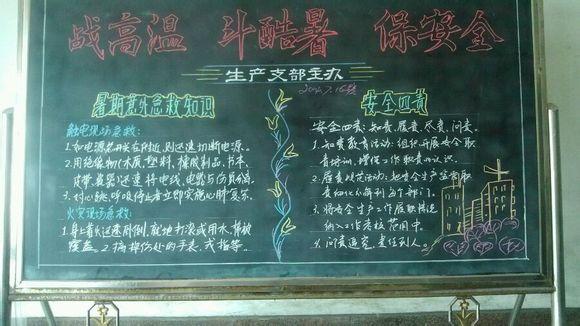 战高温 斗酷暑 保安全
生产支部主办
暑期意外急救知识
触电现场急救:
1.如电源开关在附近,则迅速切断电源。
2.用绝缘物(木质、塑料、橡胶制品、书本、
皮带、瓷器)迅速将电线、电器与伤员分离
3.对心跳、呼吸停止者立即实施心肺复苏。
火灾现场急救:
1.身上着火迅速卧倒,就地打滚或用水、棉被
覆盖。2.摘掉伤处的手表、戒指等。
安全四责
安全四责:知责、履责、尽责、问责。
1.知责教育活动:组织开展安全职
责培训,增强工作职责意识。
2.履责规范活动:把安全生产监管职
责细化分解到每个部门。
3.将安全生产工作履职情况
纳入工会考核范围中。
4.问责追究,责任到人。